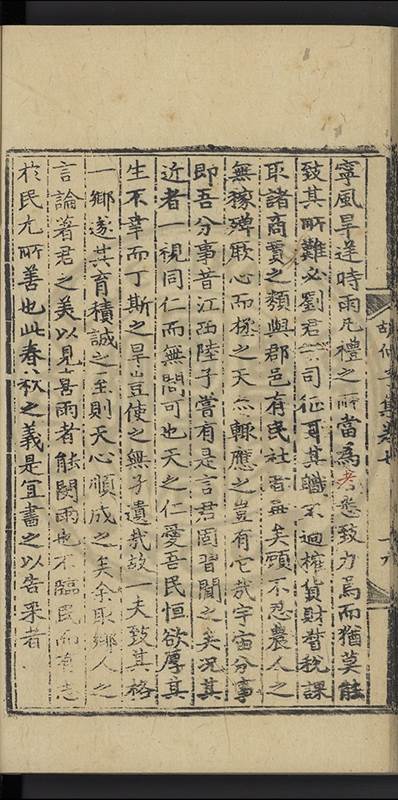 寧風旱逆時雨凡禮之所當為者悉致力焉而猶莫能
致其所難必劉君司征其職不過榷貨財督稅課
取諸商賈之類與郡邑有民社者異矣顧不忍農人之
無稼殫厥心而極之天亦輒應之豈有它哉宇宙分事
即吾分事昔江西陸子嘗有是言君固習聞之矣況其
近者一視同仁而無間可也天之仁愛吾民恒欲厚其
生不幸而丁斯之旱豈使之無孑遺哉故一夫致其格
一鄉遂其育積誠之至則天心順成之矣余取鄉人之
言論著君之美以見喜雨者能閔雨也不臨民而有志
於民尤所善也此春秋之義是宜書之以告采者
胡仲子集卷七
十九